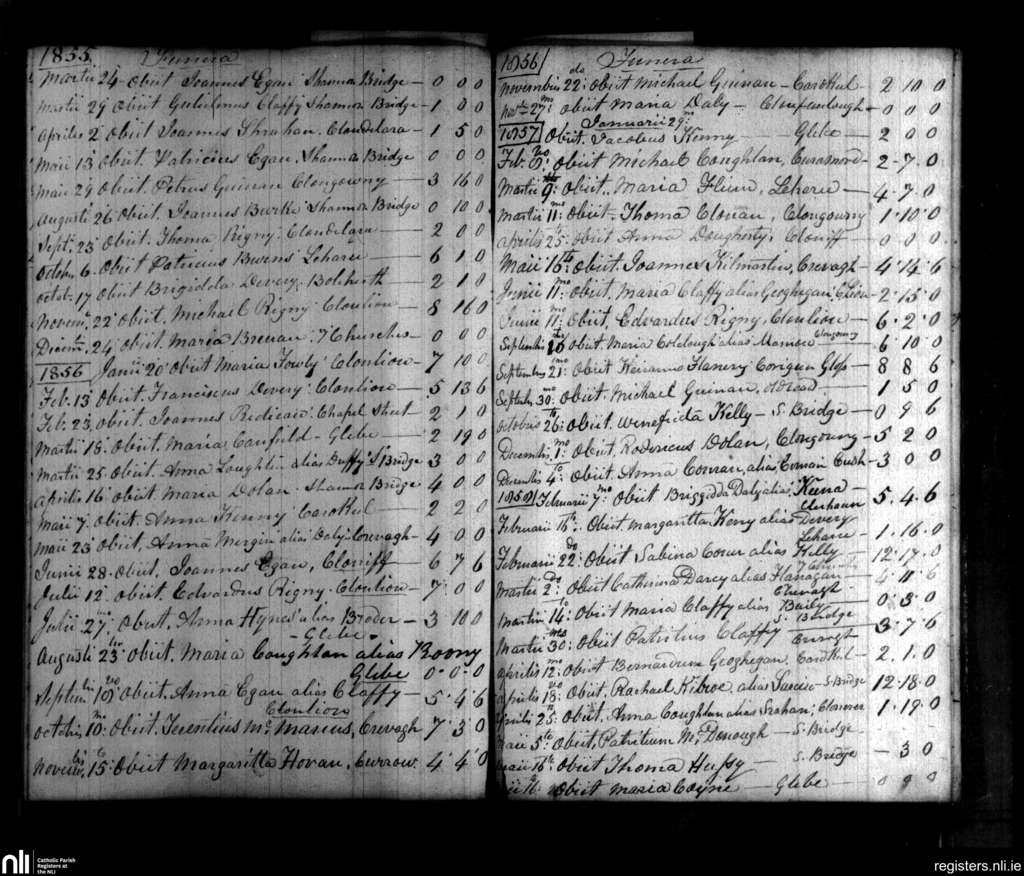 1855 Funera
Martii 24 Obiit Joannes Egan Shannon Bridge — 0 0 0
Martii 29 Obiit Gulielmus Claffy Shannon Bridge — 1 0 0
Aprilis 2 Obiit Joannes Shrahan. Clondelara — 1 5 0
Maii 13 Obiit. Patricius Egan. Shannon Bridge 0 0 0
Maii 29 Obiit. Petrus Guinan Clongowny — 3 16 0
Augusti 26 Obiit. Joannes Burke Shannon Bridge 0 10 0
Sept. 23 Obiit. Thoma Rigny. Clondelara — 2 0 0
Octobr 6. Obiit Patricius Beirns Leharu — 6 1 0
Octob. 17 Obiit Brigidda Devery. — 2 1 0
Novem. 22 Obiit. Michael Rigny Cloulion — 8 16 0
Decem. 24 Obiit. Maria Brenan. 7 Churches — 0 0 0
1856 Janii 20 Obiit Maria Fowly Cloulion — 7 10 0
Feb. 13 Obiit. Franciscus Devery. Cloulion — 5 13 6
Feb. 23. Obiit. Joannes Chapel Street — 2 1 0
Martii 18. Obiit. Maria Canfield - Glebe — 2 19 0
Martii 25. Obiit. Anna Loughlin alias Duffy S Bridge 3 0 0
Aprilis 16. Obiit Maria Dolan. Shannon Bridge 4 0 0
Maii 7. Obiit. Anna Kenny Carokeel — 2 2 0
Maii 23 Obiit, Anna Mergin alias Daly Crevagh — 4 0 0
Junii 28. Obiit, Joannes Egan, Cloniff — 6 7 6
Julii 12. Obiit. Edvardus Rigny. Cloulion — 7 0 0
Julii 27. Obiit. Anna Hynes alias Broder — 3 10 0
- Glebe.
Augusti 23 Obiit. Maria Coughlan alias Roony
Glebe 0-0-0
Septem 19 Obiit. Anna Egan alias Claffy — 5. 4 6
Cloulion
Octobris 10: Obiit. Terentius Mc Manus, Crevagh 7 3 0
Novem. 15. Obiit Margaritta Horan, Curraw. 4 4 0
1856 Funera
Novembris 22: Obiit Michael Guinan — Carokeel — 2 10 0
27: Obiit Maria Daly — Clonfanlough — 0 0 0
1857 Januarii 29:
Obiit. Jacobus Kenny — Glebe — 2 0 0
Feb. Obiit Michael Coughlan, — 2-7.0
Martii 9: Obiit. Maria Flinn, Leharu — 4.7.0
Martii 11: Obiit Thoma Clonan, Clongowny — 1.10.0
Aprilis 25: Obiit Anna Dougherty, Cloniff — 0.0.0
Maii 16: Obiit. Joannes Kilmartin, Crevagh — 4.14.6
Junii 11: Obiit. Maria Claffy alias Geoghegan — 2.15.0
Junii 11: Obiit. Edvardus Rigny, Cloulion — 6.2.0
Clongowny
Septembris 16 Obiit Maria Colclough alias — 6 10 0
Septembris 21: Obiit Kieranus Flanery Corigeen Gloss — 8 8 6
Septembr 30: Obiit. Michael Guinan, old road — 1 5 0
Octobris 26: Obiit. Winefrida Kelly — S. Bridge — 0 9 6
Decembris 1: Obiit. Rodericus Dolan, Clongowny — 5 2 0
Decembris 4: Obiit. Anna Conran, alias — 3 0 0
1858 Februarii 7: Obiit Briggidda Daly alias Keena — 5. 4. 6
Februarii 16. Obiit Margaritta Keny alias Devery
Leharu — 1.16.0
Februarii 22: Obiit Sabina alias Kelly — 12.17.0
7 Churches
Martii 2: Obiit Catherina Darcy alias Flanagan — 4.11.6
Crevagh
Martii 14: Obiit Maria Claffy alias Baily — 0.3.0
S. Bridge
Martii 30: Obiit Patritius Claffy — 3.7.6
Crevagh
Aprilis 12: Obiit Bernardum Geoghegan, Carokeel — 2.1.0
Aprilis 18: Obiit. Rachael Kilroe, alias — S. Bridge 12.18.0
Aprilis 25: Obiit. Anna Coughlan alias Srahan, — 1.19.0
Maii 5: Obiit, Patritium Mc Donough — S. Bridge
Maii 16: Obiit Thoma Hussy — S. Bridge — 3 0
16. Obiit Maria Coyne — Glebe — 0 9 0
nli
Catholic Parish
Registers at
the NLI
registers.nli.ie